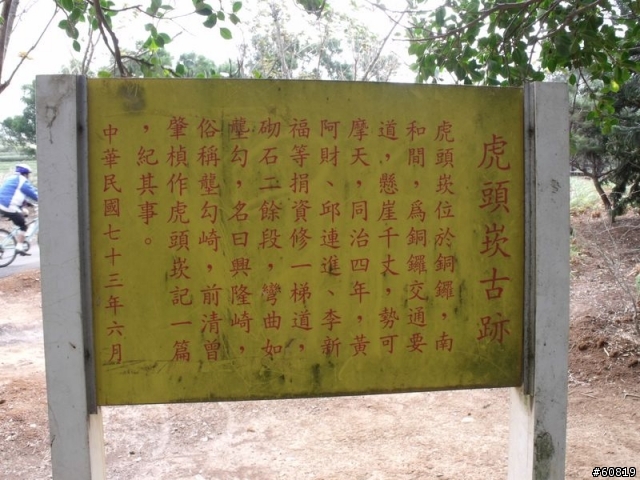 虎頭崁古跡
虎頭崁位於銅鑼，南
和間，為銅鑼交通要
道，懸崖千丈，勢可
摩天，同治四年，黃
阿財、邱連進、李新
福等捐資修一梯道，
砌石二餘段，彎曲如
壟勾，名曰興隆崎，
俗稱壟勾崎，前清曾
肇楨作虎頭崁記一篇
，紀其事。
中華民國七十三年六月
#60819